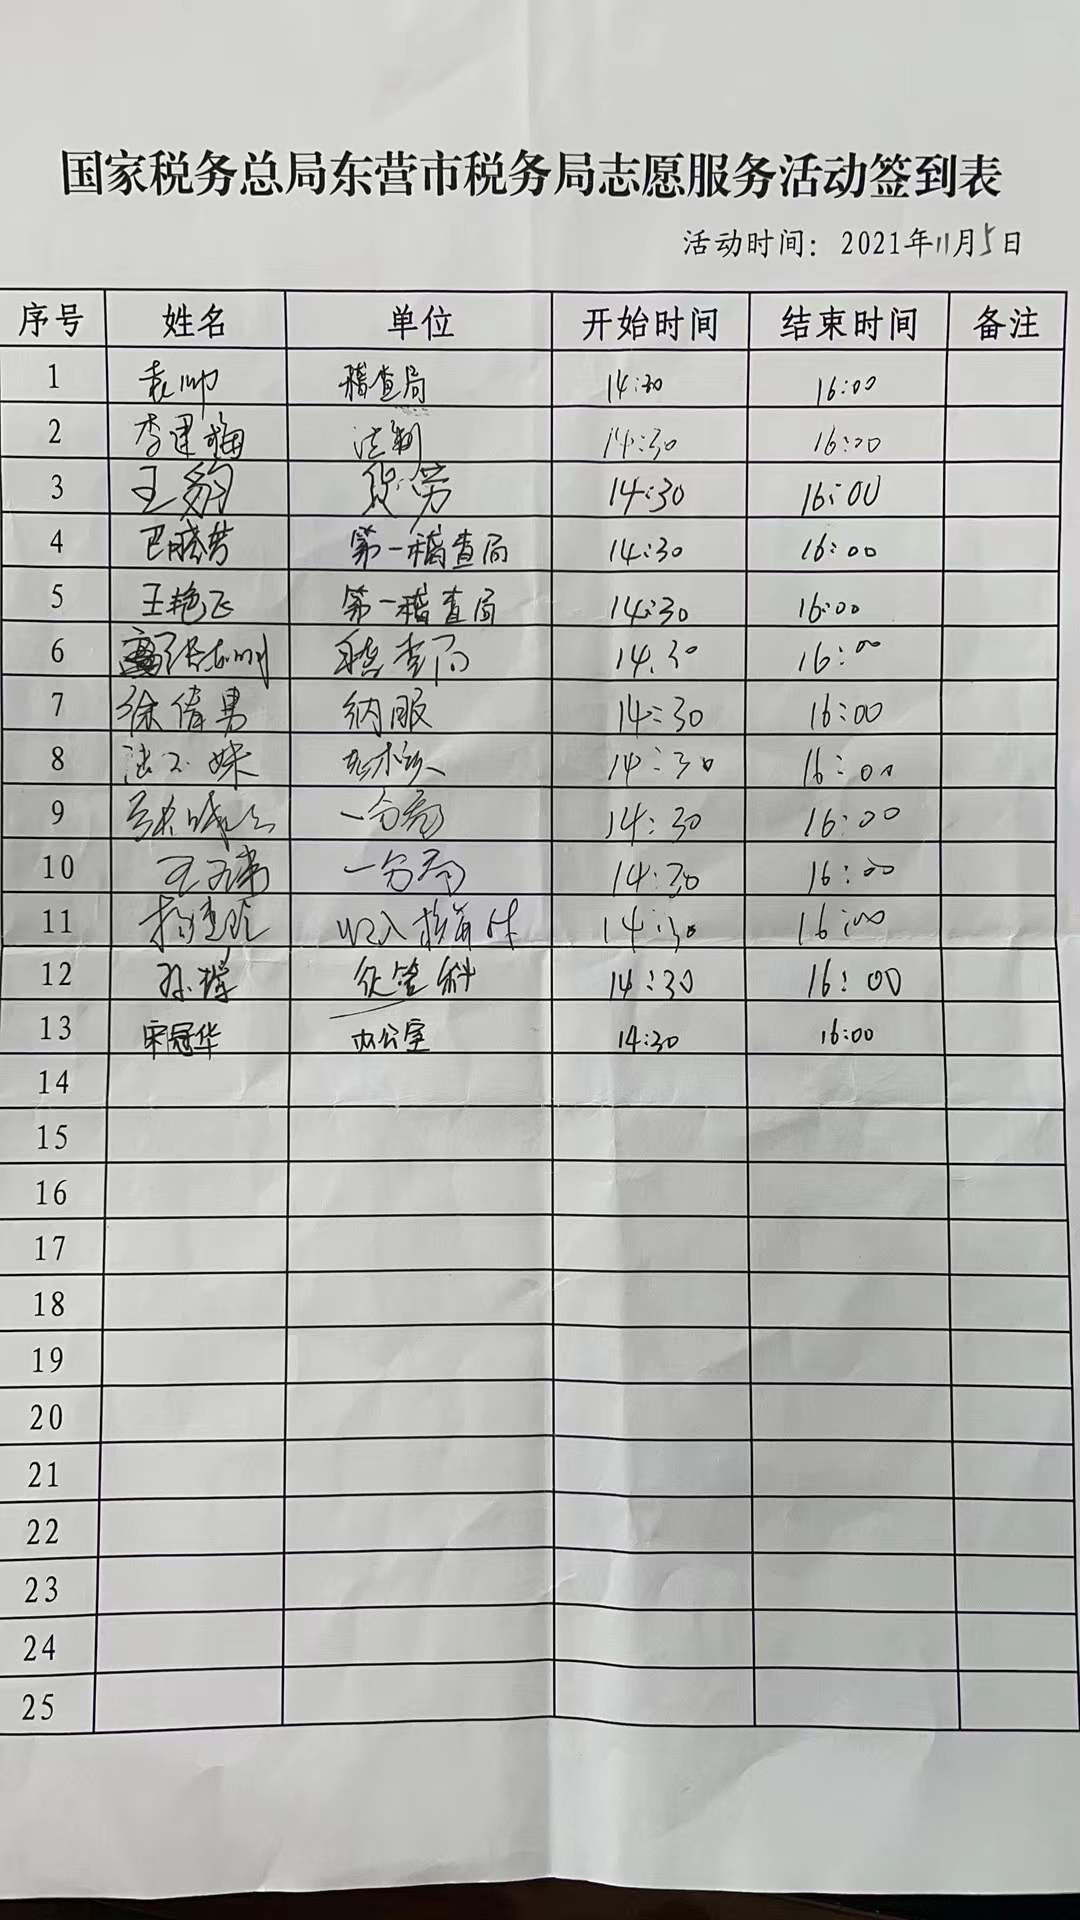 国家税务总局东营市税务局志愿服务活动签到表
活动时间：2021年11月5日
序号 姓名 单位 开始时间 结束时间 备注
1 袁帅 稽查局 14:30 16:00
2 李建梅 法制 14:30 16:00
3 王豹 货劳 14:30 16:00
4 巴晓梦 第一稽查局 14:30 16:00
5 王艳飞 第一稽查局 14:30 16:00
6 稽查局 14:30 16:00
7 徐倩男 纳服 14:30 16:00
8 14:30 16:00
9 一分局 14:30 16:00
10 一分局 14:30 16:00
11 收入核算科 14:30 16:00
12 征管科 14:30 16:00
13 宋冠华 办公室 14:30 16:00
14
15
16
17
18
19
20
21
22
23
24
25